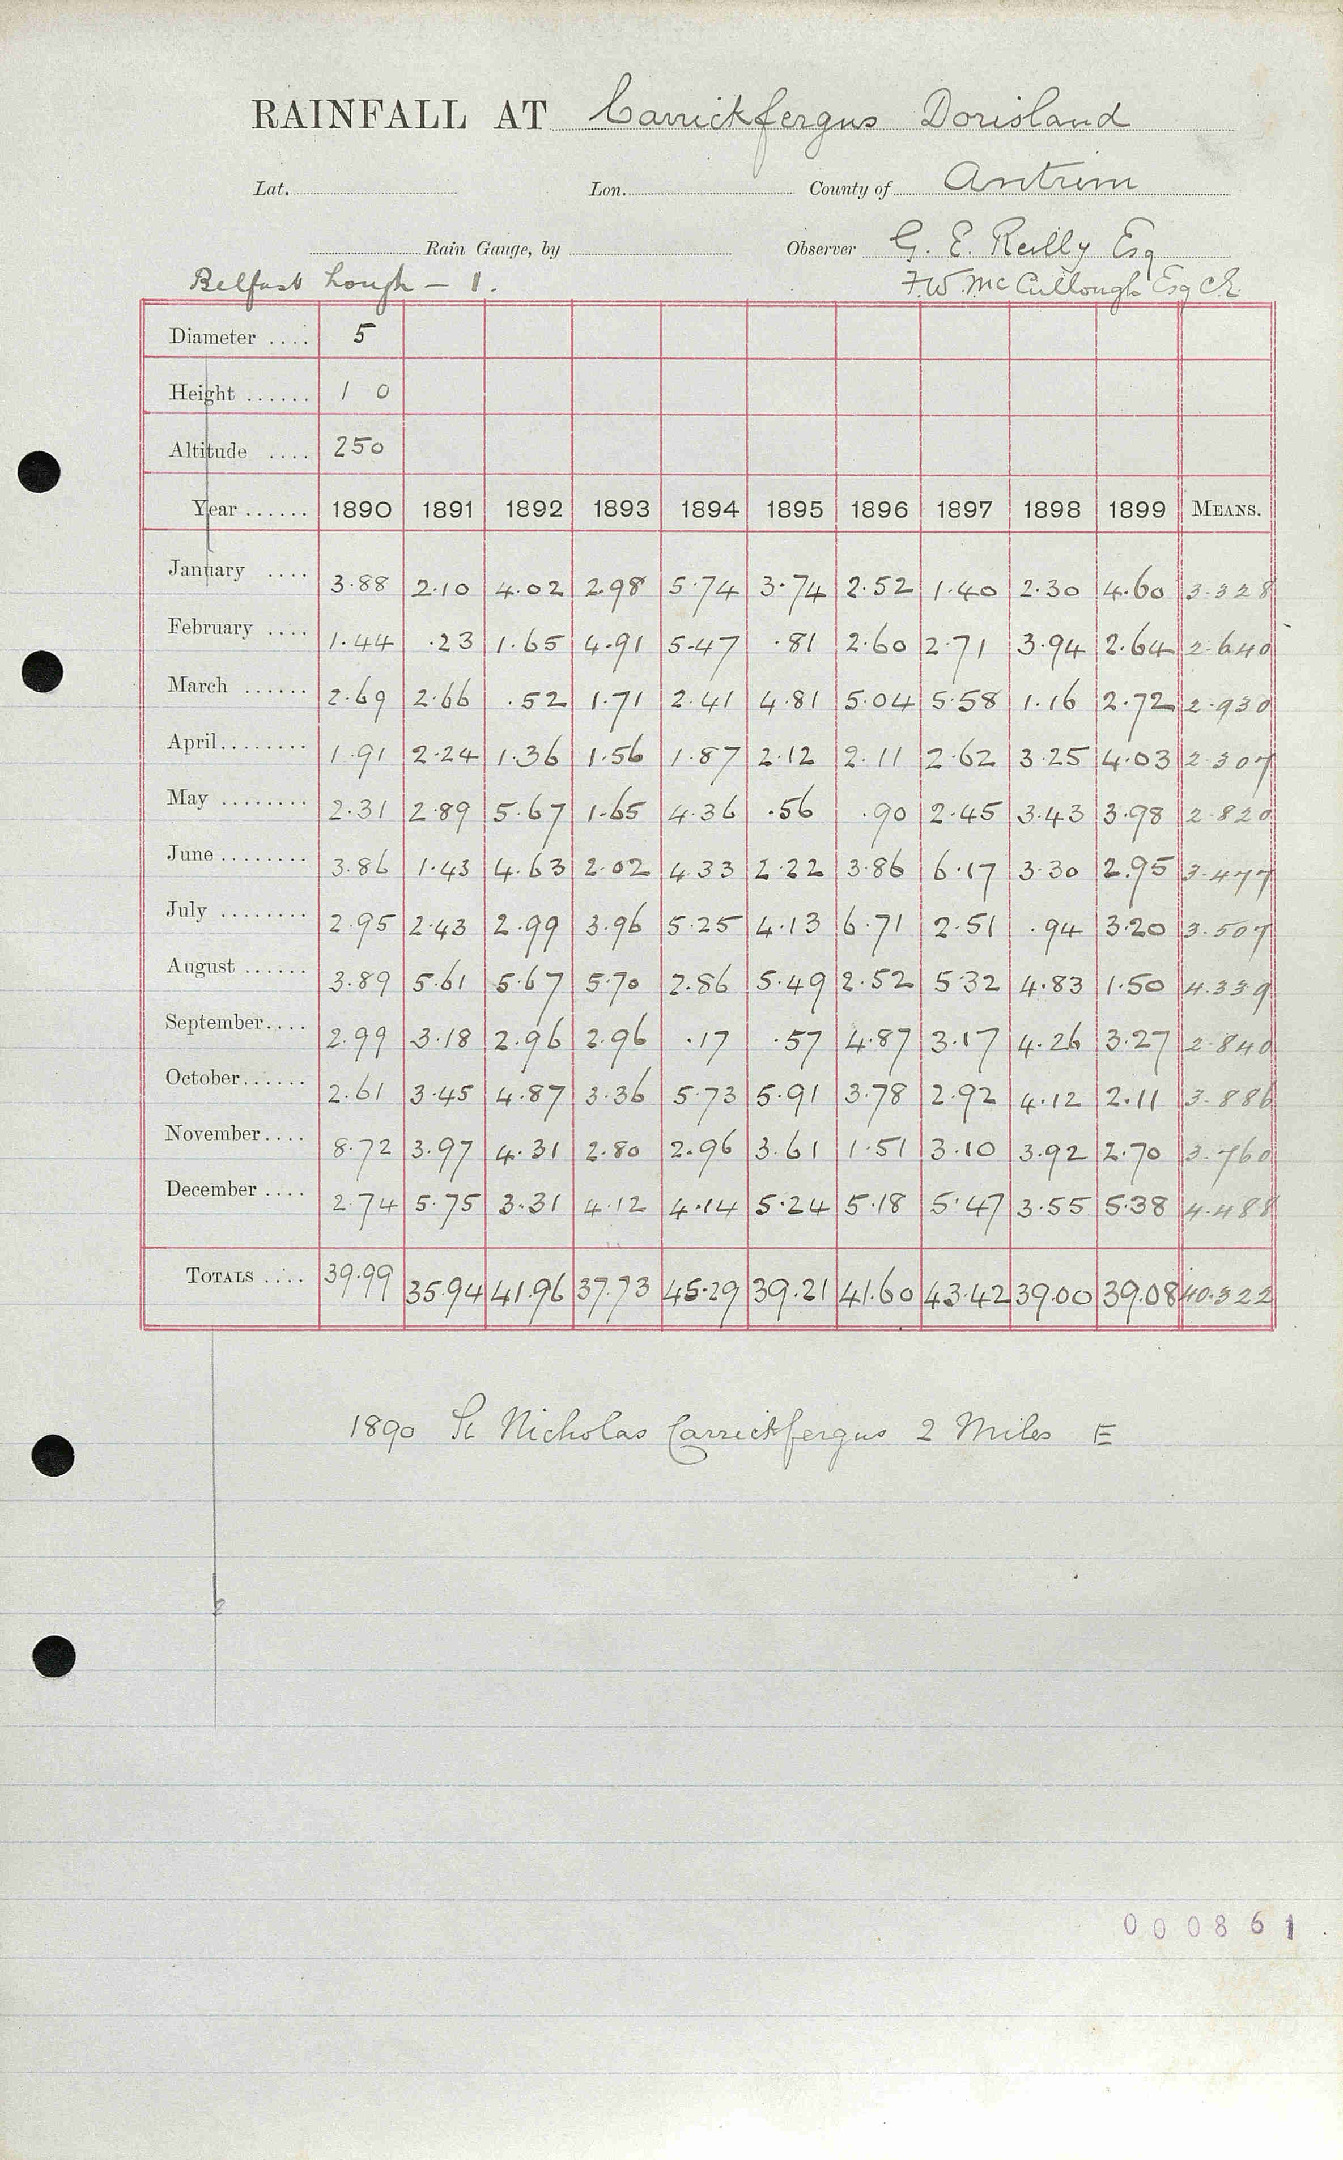 RAINFALL AT Carrickfergus Dorisland
Lat. Lon. County of Antrim
Rain Gauge, by Observer G. E. Reilly Esq
Belfast Lough – 1. F.W. McCullough Esq CE
Diameter .... 5
Height ...... 1 0
Altitude .... 250
Year ...... 1890 1891 1892 1893 1894 1895 1896 1897 1898 1899 MEANS.
January .... 3.88 2.10 4.02 2.98 5.74 3.74 2.52 1.40 2.30 4.60 3.328
February .... 1.44 .23 1.65 4.91 5.47 .81 2.60 2.71 3.94 2.64 2.640
March ...... 2.69 2.66 .52 1.71 2.41 4.81 5.04 5.58 1.16 2.72 2.930
April........ 1.91 2.24 1.36 1.56 1.87 2.12 2.11 2.62 3.25 4.03 2.307
May ........ 2.31 2.89 5.67 1.65 4.36 .56 .90 2.45 3.43 3.98 2.820
June ........ 3.86 1.43 4.63 2.02 4.33 2.22 3.86 6.17 3.30 2.95 3.477
July ........ 2.95 2.43 2.99 3.96 5.25 4.13 6.71 2.51 .94 3.20 3.507
August ...... 3.89 5.61 5.67 5.70 2.86 5.49 2.52 5.32 4.83 1.50 4.339
September.... 2.99 3.18 2.96 2.96 .17 .57 4.87 3.17 4.26 3.27 2.840
October...... 2.61 3.45 4.87 3.36 5.73 5.91 3.78 2.92 4.12 2.11 3.886
November.... 8.72 3.97 4.31 2.80 2.96 3.61 1.51 3.10 3.92 2.70 3.760
December .... 2.74 5.75 3.31 4.12 4.14 5.24 5.18 5.47 3.55 5.38 4.488
TOTALS .... 39.99 35.94 41.96 37.73 45.29 39.21 41.60 43.42 39.00 39.08 40.322
1890 St Nicholas Carrickfergus 2 Miles E
000861